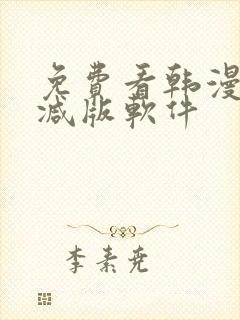 免費看韩漫
减版軟件
李素尭